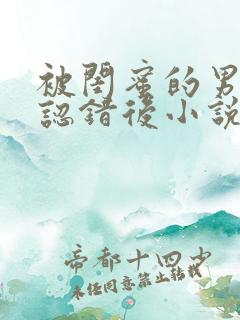 被閨蜜的男
認錯後小說
帝都十四少
未任同意禁止轉載